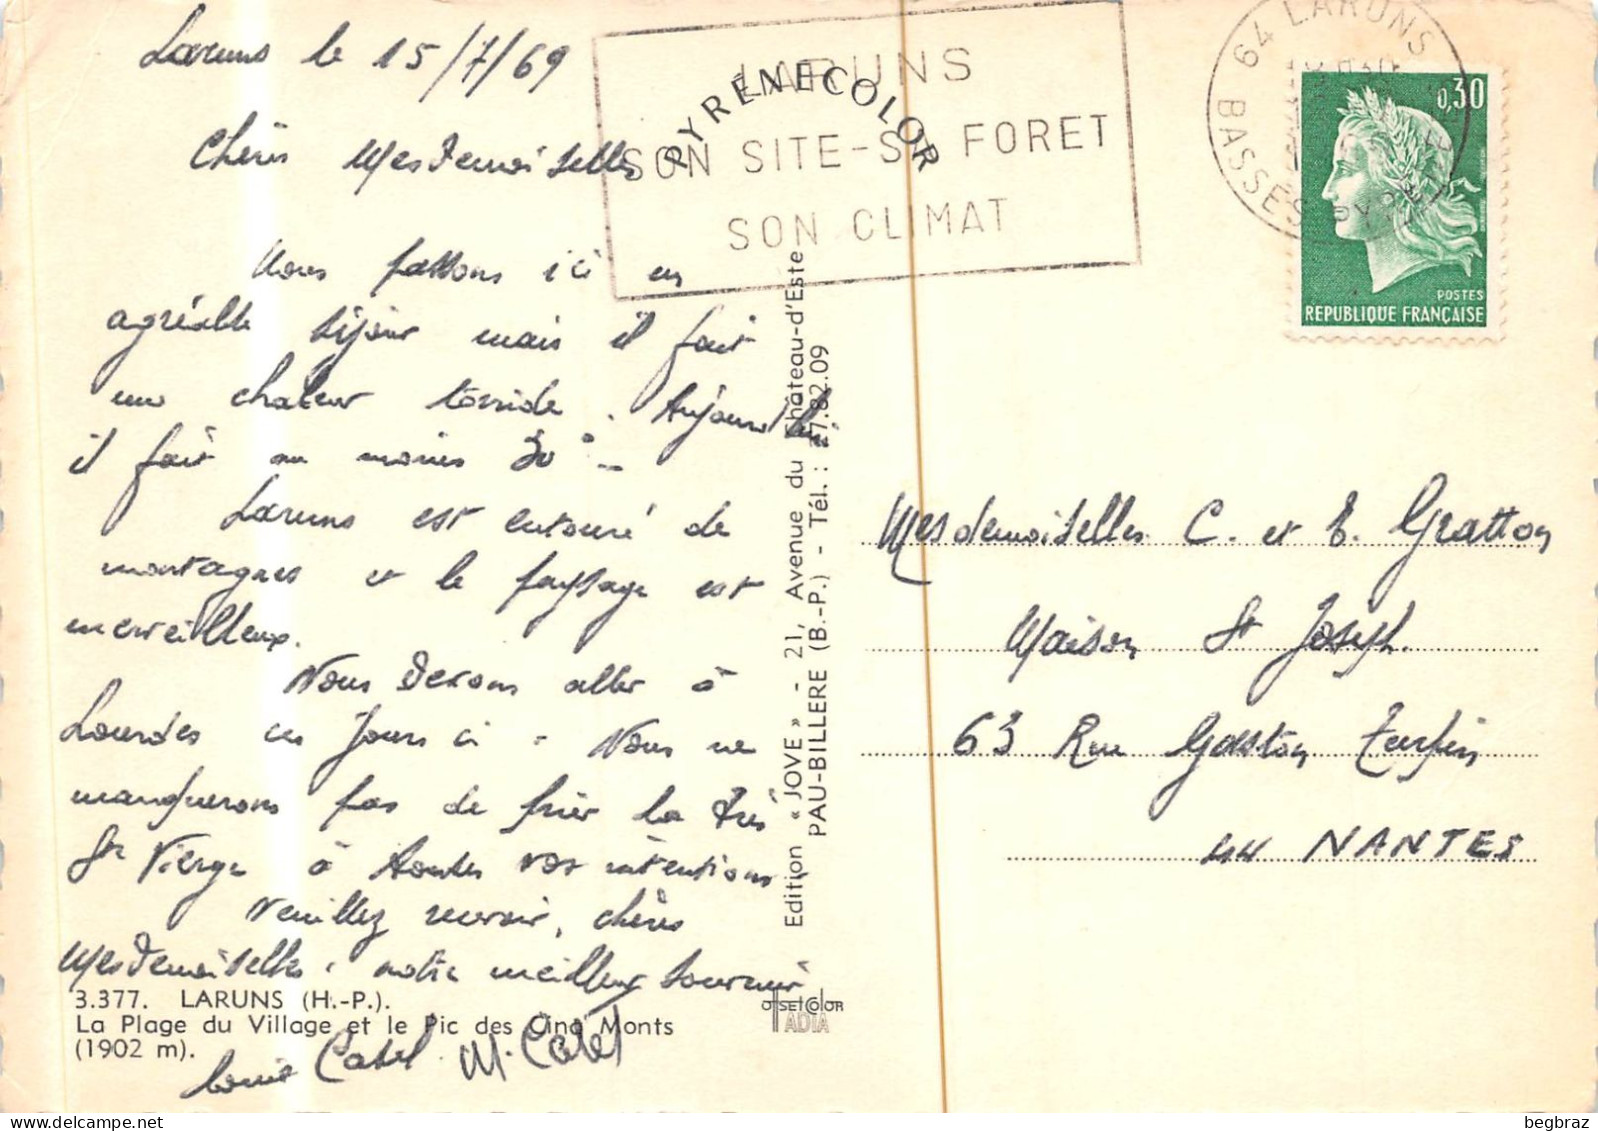 Laruns le 15/7/69
Chères Mesdemoiselles
Nous passons ici un
agréable séjour mais il fait
une chaleur torride. Aujourd'hui
il fait au moins 30° -
Laruns est entouré de
montagnes et le paysage est
merveilleux.
Nous devons aller à
Lourdes ces jours ci - Nous ne
manquerons pas de prier la très
Ste Vierge à toutes vos intentions
Veuillez recevoir, chères
Mesdemoiselles, notre meilleur souvenir
3.377. LARUNS (H.-P.).
La Plage du Village et le Pic des Cinq Monts
(1902 m).
M. Catel
PYRÉNÉCOLOR
LARUNS
SON SITE-SA FORET
SON CLIMAT
Edition « JOVE » - 21, Avenue du Château-d'Este
PAU-BILLERE (B.-P.) - Tél. : 27.82.09
OFFSET COLOR
IADIA
64 LARUNS
BASSES PYRENEES
0,30
POSTES
REPUBLIQUE FRANÇAISE
Mesdemoiselles C. et E. Gratton
Maison St Joseph.
63 Rue Gaston Turpin
44 NANTES
begbraz